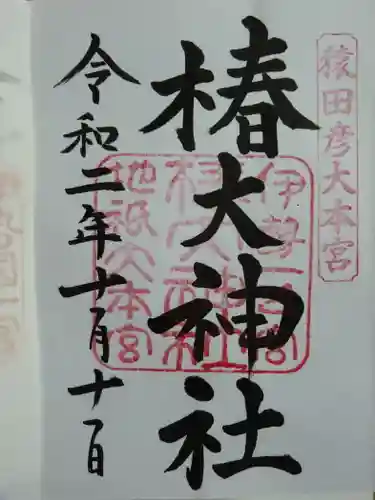 猿田彦大本宮
椿大神社
伊勢一之宮
椿大神社
地祇大本宮
令和二年十月十一日